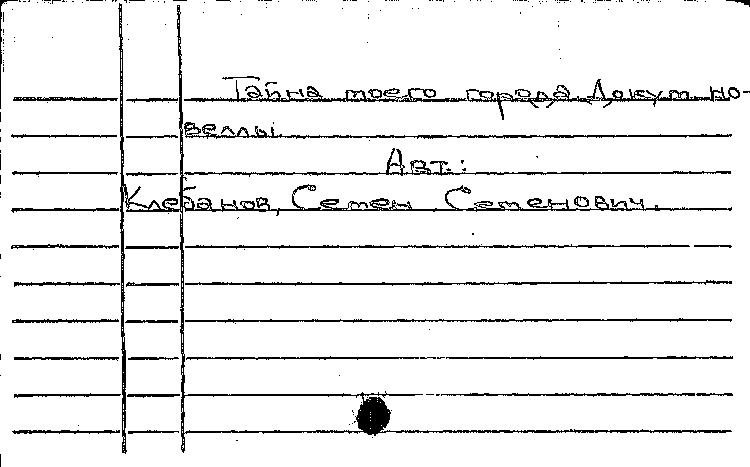 Тайна моего города. Докум. но-
веллы.
Авт.:
Клебанов, Семен Семенович.